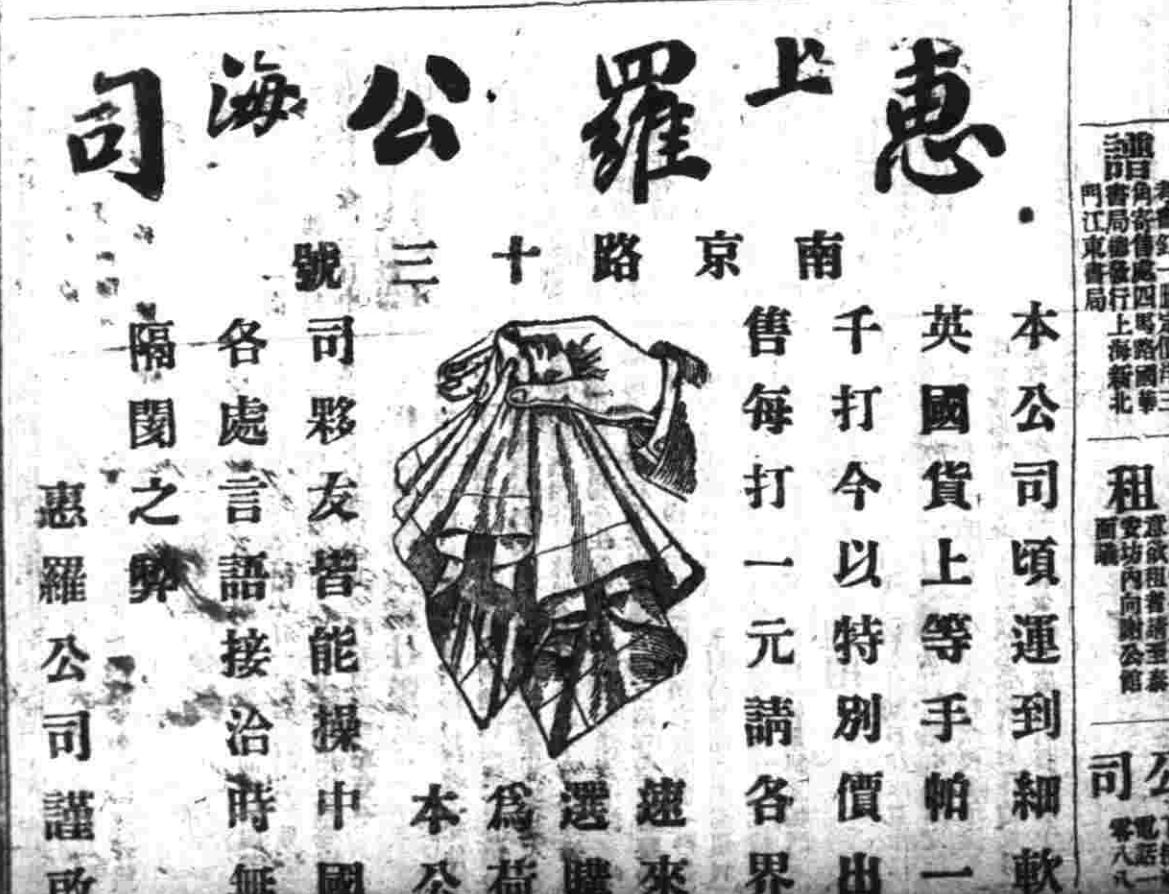 上海
惠羅公司
南京路十三號
本公司頃運到細軟
英國貨上等手帕一
千打今以特別價出
售每打一元請各界
速來
選購
為荷
本公
司夥友皆能操中國
各處言語接洽時無
隔閡之弊
惠羅公司謹啟
角寄售處四馬路國華
書局總發行上海新北
門江東書局
租
安坊內向謝公館
面議
公
司
電話
零八八